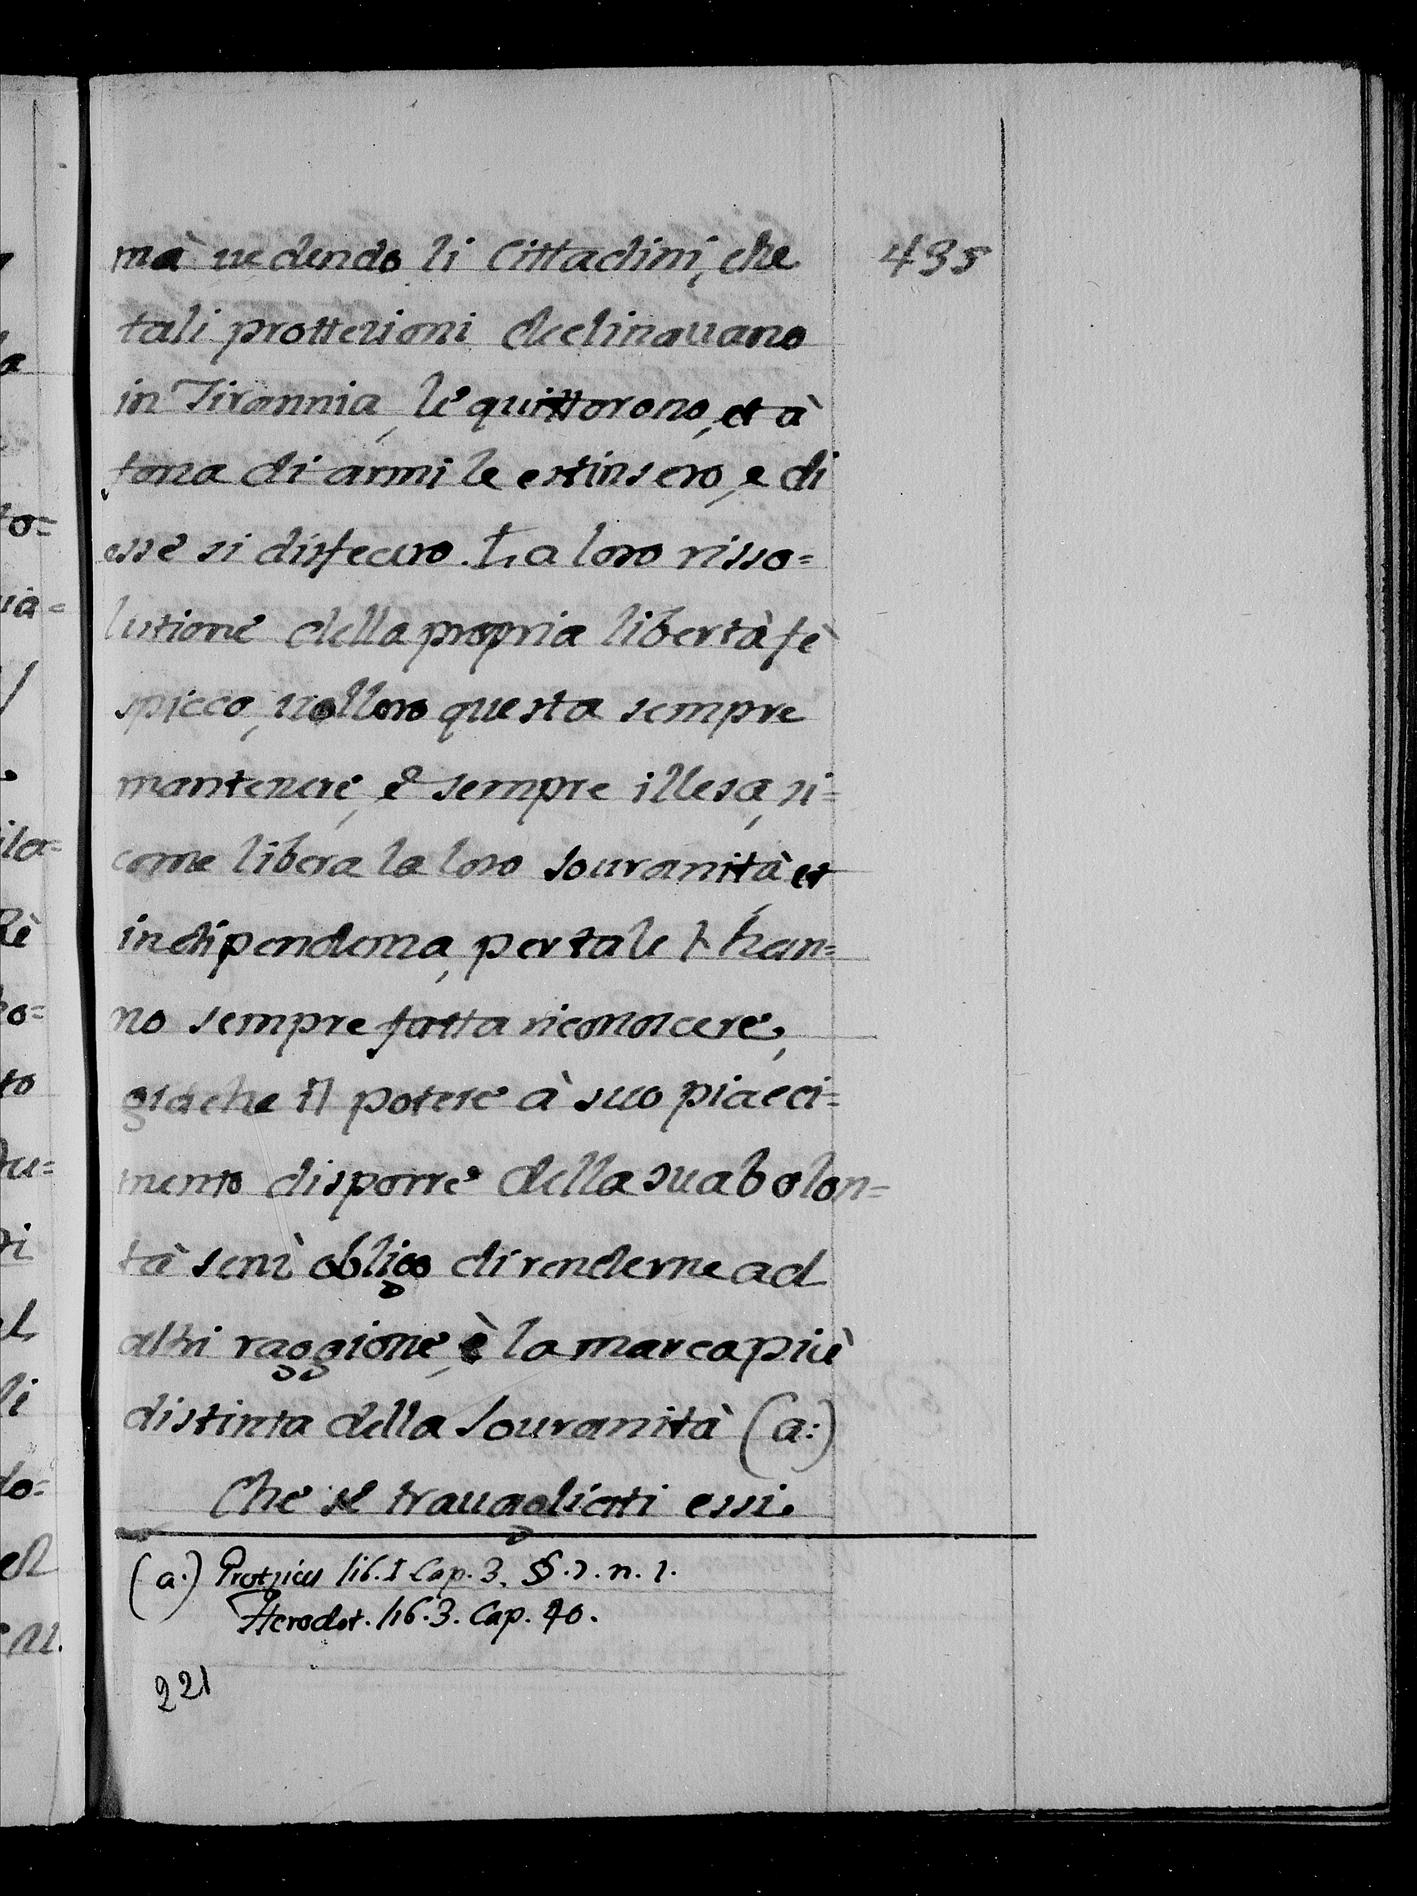 mà uedendo li Cittadini, che
435
tali prottezioni declinauano
in Tirannia, le quittorono, et à
forza di armi le estinsero, e di
esse si disfecero. La loro risso=
lutione della propria libertà fè
spicco, uollero questa sempre
mantenere, e sempre illesa, si=
come libera la loro souranità, et
indipendenza, per tale l' han=
no sempre fatta riconoscere,
giache il potere à suo piaeci=
mento disporre della sua bolon=
tà senz' obligo di renderne ad
altri raggione, è la marca più
distinta della Souranità (a:)
Che se trauagliati essi
(a.) lib. I Cap. 3. §. 7. n. 1.
Herodot. lib. 3. Cap. 40.
221